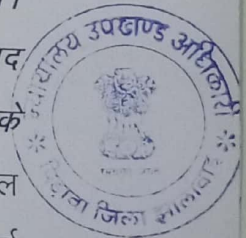 द
के
ल
न्यायालय उपखण्ड अधिकारी
पिड़ावा जिला झालावाड़